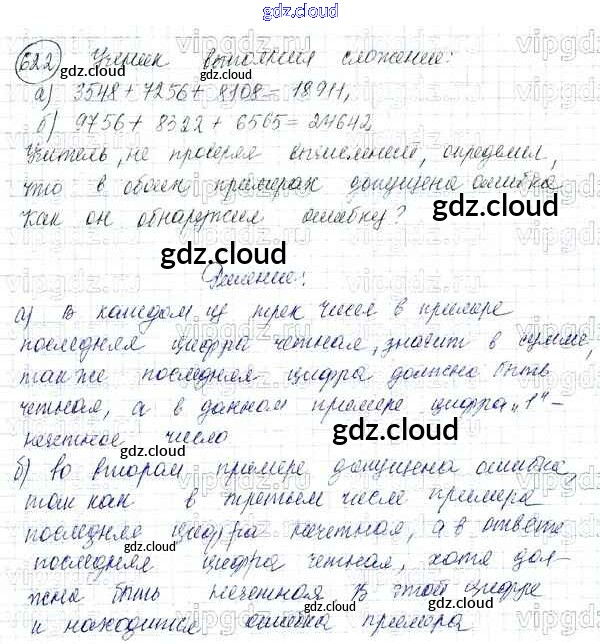 gdz.cloud
622 Ученик выполнил сложение:
gdz.cloud gdz.cloud
а) 3548 + 7256 + 8108 = 18911,
б) 9756 + 8322 + 6565 = 24642
Учитель, не проверяя вычислений, определил,
что в обоих примерах допущена ошибка
Как он обнаружил ошибку?
gdz.cloud
gdz.cloud
Решение:
а) В каждом из трех чисел в примере
последняя цифра четная, значит в сумме,
также последняя цифра должна быть
четная, а в данном примере цифра "1" -
нечетное число
gdz.cloud gdz.cloud
б) во втором примере допущена ошибка,
так как в третьем числе примера
последняя цифра нечетная, а в ответе
gdz.cloud
последняя цифра четная, хотя дол-
жна быть нечетная В этой цифре
и находится ошибка примера
gdz.cloud gdz.cloud